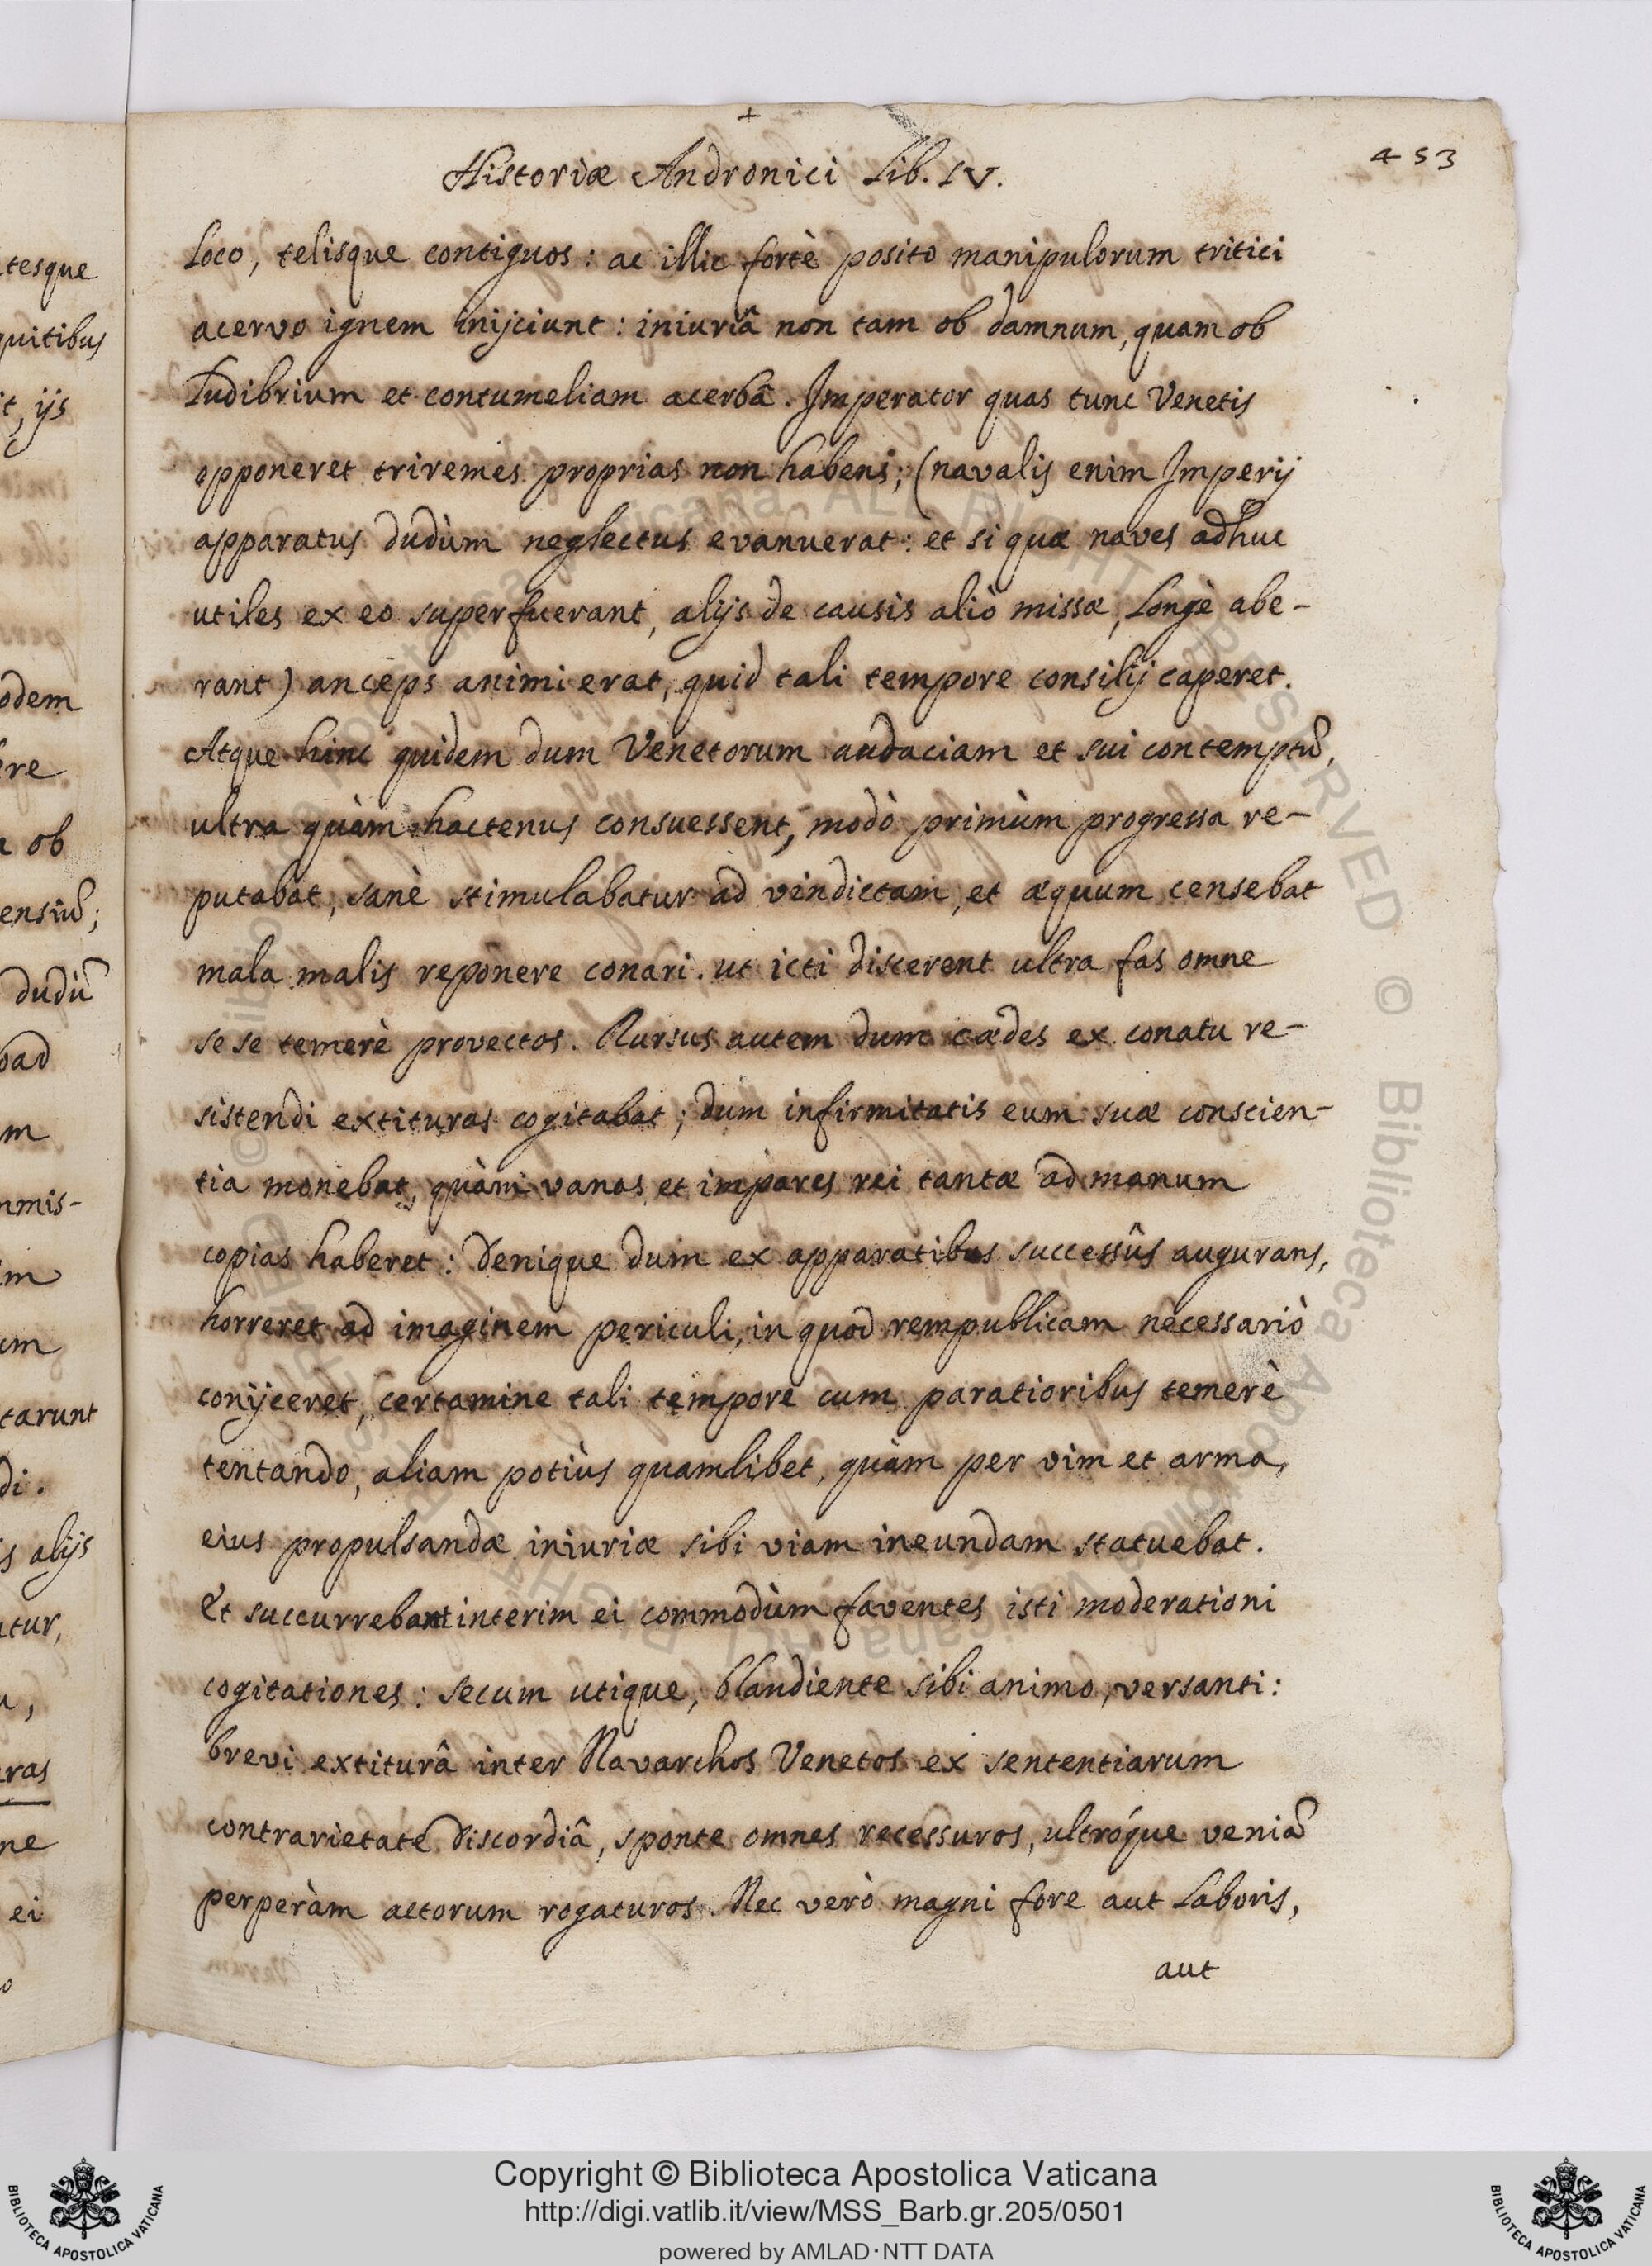 +
Historiæ Andronici Lib. IV.
453
Loco, telisque contiguos: ac illic fortè posito manipulorum tritici
acervo ignem inijciunt: iniuriâ non tam ob damnum, quam ob
ludibrium et contumeliam acerbâ. Imperator quas tunc Venetis
opponeret triremes proprias non habens; (navalis enim Imperij
apparatus dudùm neglectus evanuerat: et si quæ naves adhuc
utiles ex eo superfuerant, alijs de causis aliò missæ, Longè abe-
rant) anceps animi erat, quid tali tempore consilij caperet.
Atque hinc quidem dum Venetorum audaciam et sui contemptũ,
ultra quàm hactenus consuessent, modò primùm progressa re-
putabat, sanè stimulabatur ad vindictam, et æquum censebat
mala malis reponere conari. ut icti discerent ultra fas omne
se se temerè provectos. Rursus autem dum cædes ex conatu re-
sistendi extituras cogitabat; dum infirmitatis eum suæ conscien-
tia monebat, quàm vanas et impares rei tantæ ad manum
copias haberet: Denique dum ex apparatibus successûs augurans,
horreret ad imaginem periculi, in quod rempublicam necessariò
conijceret, certamine tali tempore cum paratioribus temerè
tentando, aliam potiùs quamlibet, quàm per vim et arma,
eius propulsandæ iniuriæ sibi viam ineundam statuebat.
Et succurrebant interim ei commodùm faventes isti moderationi
cogitationes: secum utique, blandiente sibi animo, versanti:
brevi extiturâ inter Navarchos Venetos ex sententiarum
contrarietate discordiâ, sponte omnes recessuros, ultróque veniã
perperàm actorum rogaturos. Nec verò magni fore aut Laboris,
aut
tesque
quitibus
t, ijs
odem
re
ob
ensiũ;
dudũ
oad
m
mmis-
m
um
tarunt
di.
s alijs
tur,
ras
ne
ei
Copyright © Biblioteca Apostolica Vaticana
http://digi.vatlib.it/view/MSS_Barb.gr.205/0501
powered by AMLAD·NTT DATA
BIBLIOTECA APOSTOLICA VATICANA
BIBLIOTECA APOSTOLICA VATICANA